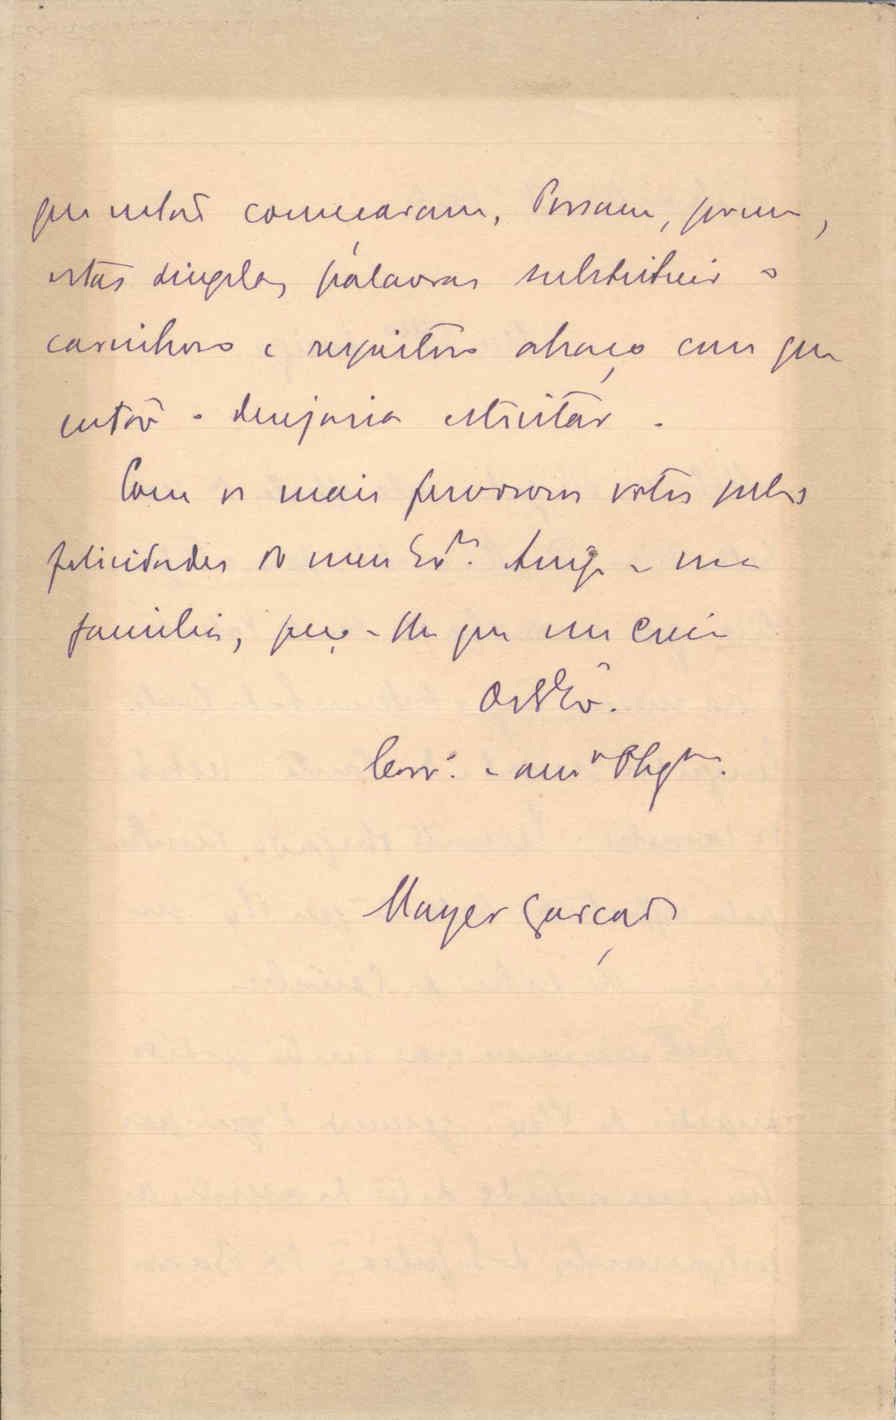 que então começaram. Possam, porem,
estas singelas palavras substituir o
carinhoso e respeitoso abraço com que
então o desejaria estreitar.
Com os mais fervorosos votos pelas
felicidades do meu Exº. Amigo e sua
familia, peço-lhe que me creia
De V. Exª.
Corrº. e amº obgº.
Mayer Garção